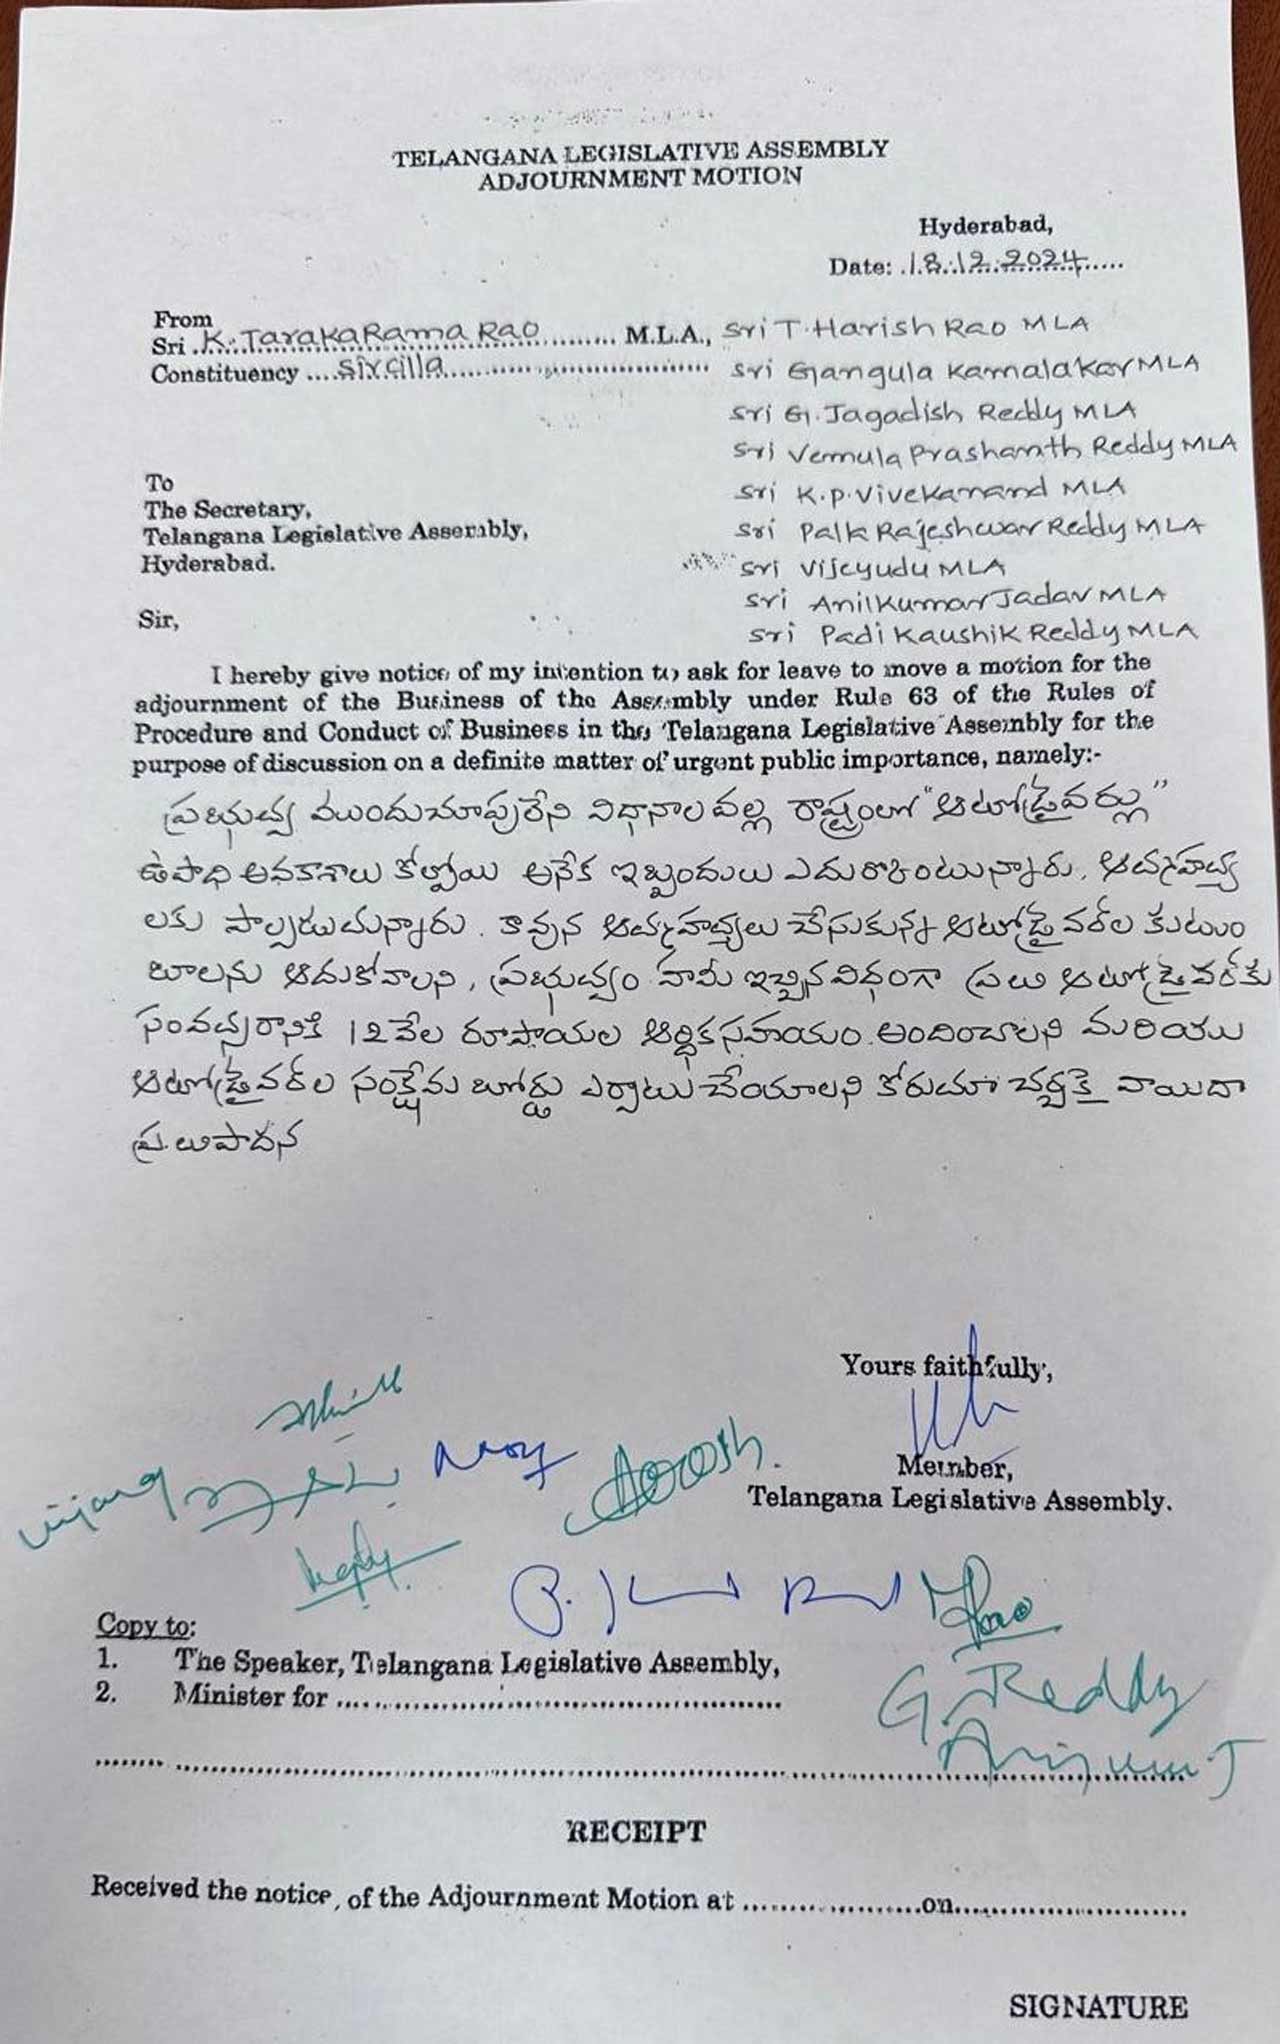 TELANGANA LEGISLATIVE ASSEMBLY
ADJOURNMENT MOTION
Hyderabad,
Date: .18.12.2024......
From
Sri .K. TarakaRama Rao......... M.L.A., Sri T. Harish Rao MLA
Constituency ....Sircilla.............................. Sri Gangula Kamalakar MLA
Sri G. Jagadish Reddy MLA
Sri Vemula Prashanth Reddy MLA
To
Sri K.P. Vivekanand MLA
The Secretary,
Telangana Legislative Assembly,
Sri Palla Rajeshwar Reddy MLA
Hyderabad.
Sri Vijeyudu MLA
Sri Anil Kumar Jadav MLA
Sir,
Sri Padi Kaushik Reddy MLA
I hereby give notice of my intention to ask for leave to move a motion for the
adjournment of the Business of the Assembly under Rule 63 of the Rules of
Procedure and Conduct of Business in the Telangana Legislative Assembly for the
purpose of discussion on a definite matter of urgent public importance, namely:-
ప్రభుత్వ ముందుచూపులేని విధానాల వల్ల రాష్ట్రంలో "ఆటోడ్రైవర్లు"
ఉపాధి అవకాశాలు కోల్పోయి అనేక ఇబ్బందులు ఎదుర్కొంటున్నారు. ఆత్మహత్య
లకు పాల్పడుతున్నారు. కావున ఆత్మహత్యలు చేసుకున్న ఆటోడ్రైవర్ల కుటుం
బాలను ఆదుకోవాలని, ప్రభుత్వం హామీ ఇచ్చిన విధంగా ప్రతి ఆటోడ్రైవర్‌కు
సంవత్సరానికి 12వేల రూపాయల ఆర్థిక సహయం అందించాలని మరియు
ఆటోడ్రైవర్ల సంక్షేమ బోర్డు ఎర్పాటు చేయాలని కోరుతూ చర్చకై వాయిదా
ప్రతిపాదన
Yours faithfully,
Member,
Telangana Legislative Assembly.
Copy to:
1. The Speaker, Telangana Legislative Assembly,
2. Minister for ..................................................
G. Reddy
RECEIPT
Received the notice of the Adjournment Motion at ....................on..........................
SIGNATURE